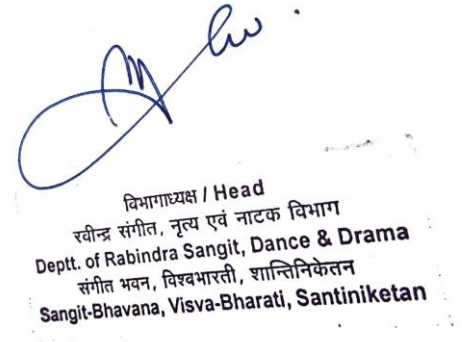 विभागाध्यक्ष / Head
रवीन्द्र संगीत, नृत्य एवं नाटक विभाग
Deptt. of Rabindra Sangit, Dance & Drama
संगीत भवन, विश्वभारती, शान्तिनिकेतन
Sangit-Bhavana, Visva-Bharati, Santiniketan